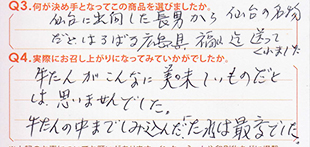 Q3.何が決め手となってこの商品を選びましたか。
仙台に出向した長男から 仙台の名物
だと、はるばる広島県 福山迄 送って
くれました
Q4.実際にお召し上がりになってみていかがでしたか。
牛たんがこんなに美味しいものだと
は、思いませんでした。
牛たんの中までしみ込んだたれは最高でした。